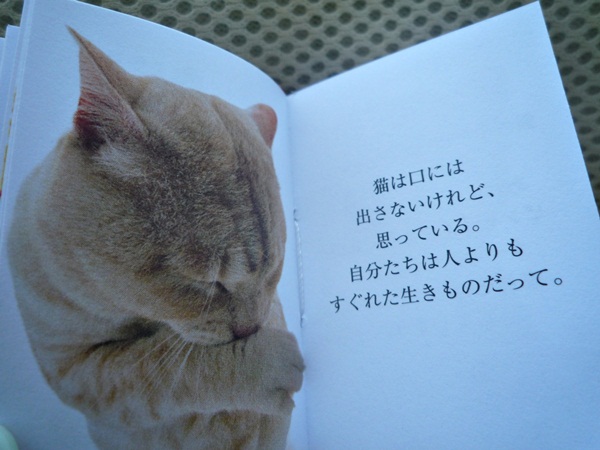 猫は口には
出さないけれど、
思っている。
自分たちは人よりも
すぐれた生きものだって。